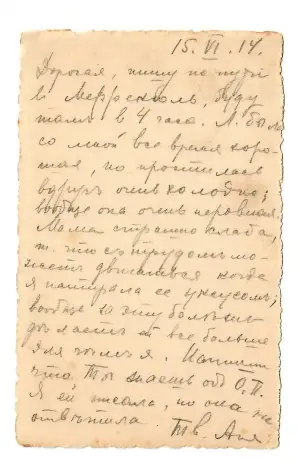 15. VI. 14.
Дорогая, пишу по пути
в Меррекюль, буду
тамъ в 4 часа. М. была
со мной все время хоро-
шая, но простилась
вдругъ очень холодно;
вообще она очень нервная.
Мама страшно слаба,
т. что съ трудомъ мо-
жетъ двигаться когда
я натирала ее уксусомъ;
вообще за эту болѣзнь
ей все больше
я.
что Ты знаешь объ О.П.
Я ей писала, но она не
отвѣтила Тв. Аня